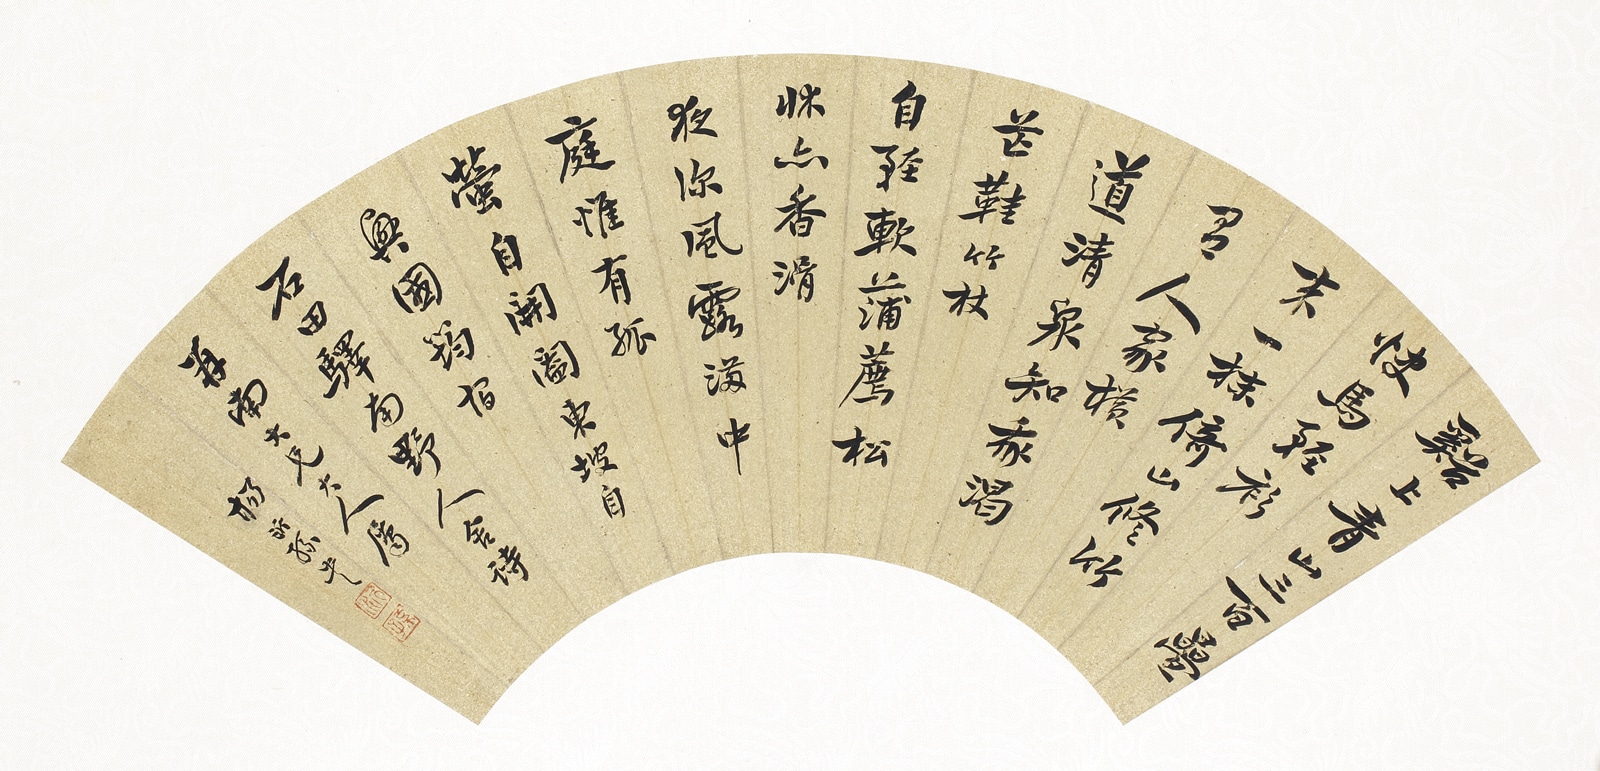 谿上青山三百疊
快馬輕衫
來一抹倚山修竹
有人家橫
道清泉知我渴
芒鞋竹杖
自輕軟蒲薦松
牀亦香滑
夜深風露滿中
庭惟有孤
螢自開闔東坡自
興國筠宿
石田驛南野人舍詩
南大兄大人屬
楊沂孫